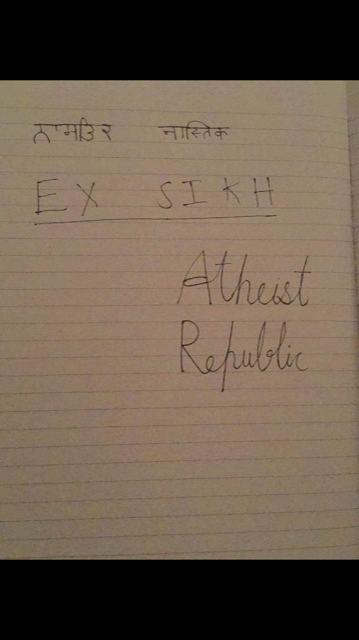 ਨਾਸਤਿਕ नास्तिक
EX SIKH
Atheist
Republic